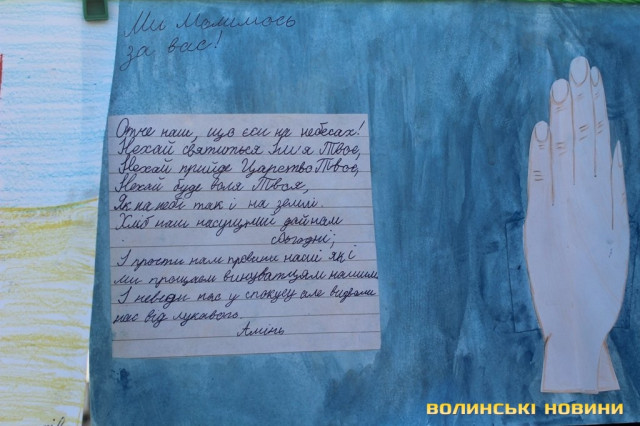 Ми Молимось
за вас!
Отче наш, що єси на небесах!
Нехай святиться Ім'я Твоє,
Нехай прийде Царство Твоє,
Нехай буде воля Твоя,
Як на небі так і на землі.
Хліб наш насущний дай нам
сьогодні;
І прости нам провини наші як і
ми прощаєм винуватцям нашим
І невведи нас у спокусу але визволи
нас від лукавого.
Амінь
ВОЛИНСЬКІ НОВИНИ